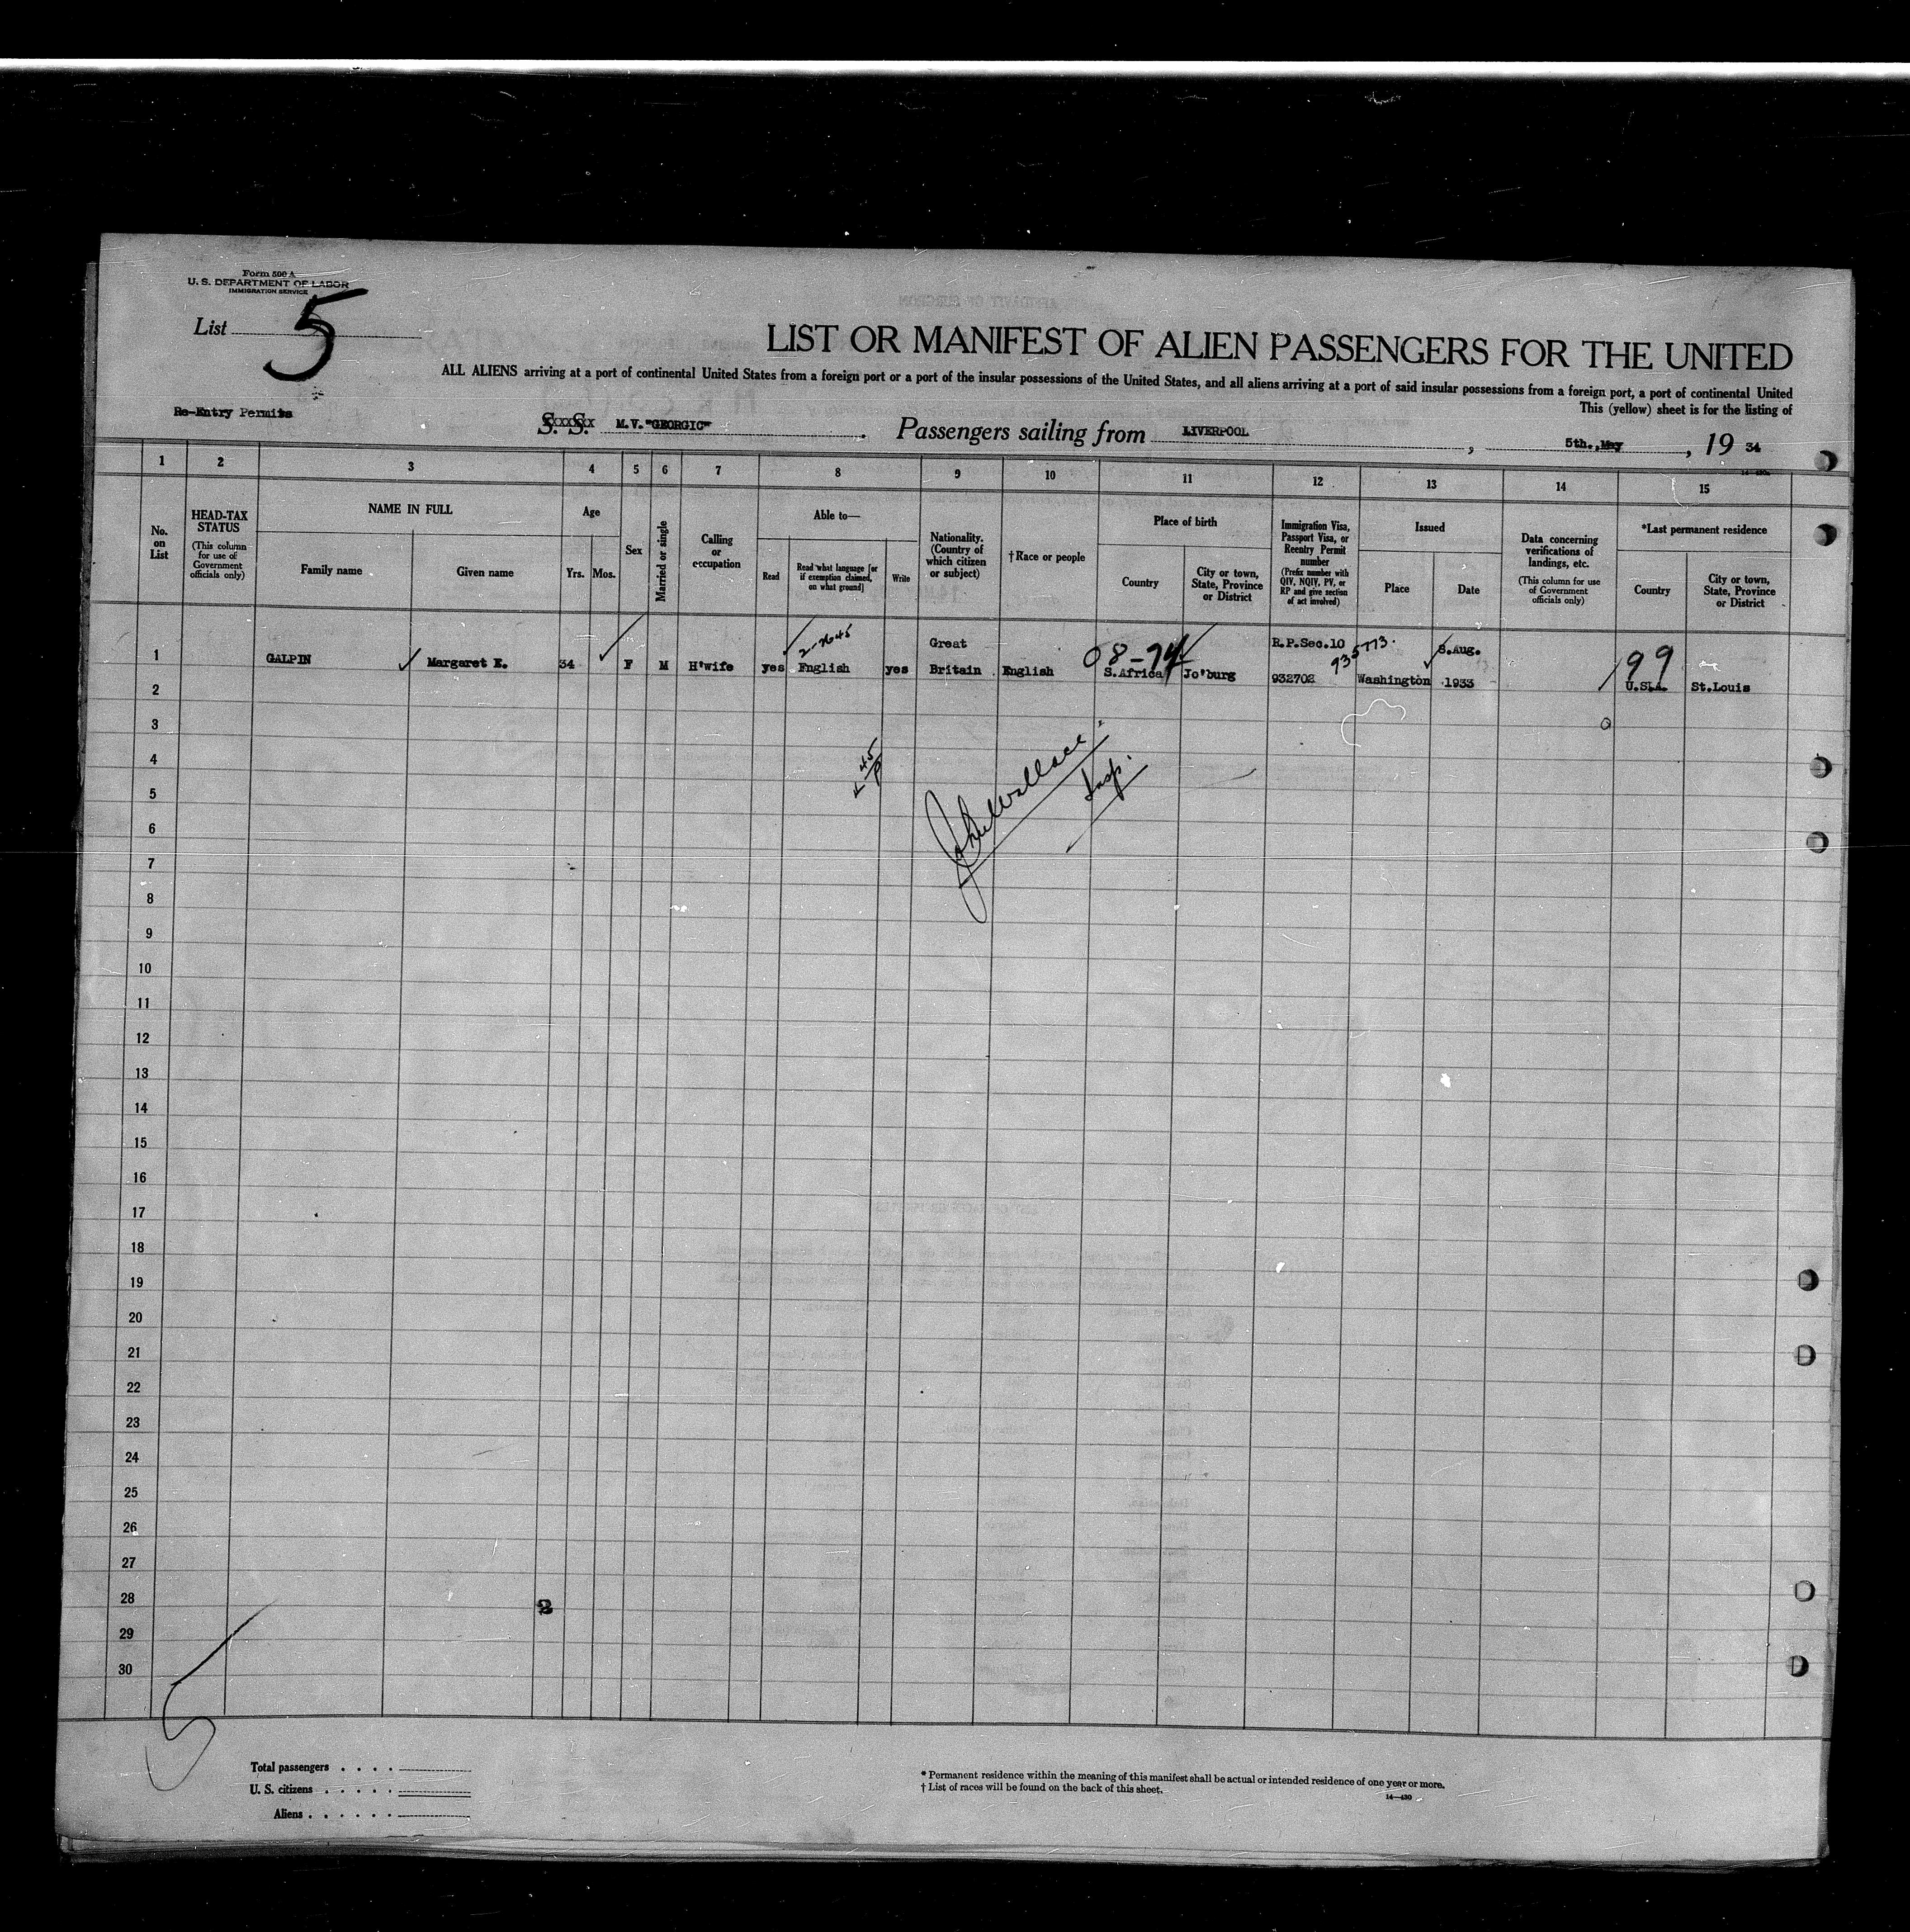 Form 500 A
U. S. DEPARTMENT OF LABOR
IMMIGRATION SERVICE
List 5
LIST OR MANIFEST OF ALIEN PASSENGERS FOR THE UNITED
ALL ALIENS arriving at a port of continental United States from a foreign port or a port of the insular possessions of the United States, and all aliens arriving at a port of said insular possessions from a foreign port, a port of continental United
This (yellow) sheet is for the listing of
Re-Entry Permits
S. S. M.V."GEORGIC" Passengers sailing from LIVERPOOL, 5th.,May, 19 34
1 2 3 4 5 6 7 8 9 10 11 12 13 14 15
No. on List
HEAD-TAX STATUS
(This column for use of Government officials only)
NAME IN FULL
Family name
Given name
Age
Yrs. Mos.
Sex
Married or single
Calling or occupation
Able to—
Read
Read what language [or if exemption claimed, on what ground]
Write
Nationality. (Country of which citizen or subject)
†Race or people
Place of birth
Country
City or town, State, Province or District
Immigration Visa, Passport Visa, or Reentry Permit number
(Prefix number with QIV, NQIV, PV, or RP and give section of act involved)
Issued
Place
Date
Data concerning verifications of landings, etc.
(This column for use of Government officials only)
*Last permanent residence
Country
City or town, State, Province or District
2-7645
Great R.P.Sec.10 935773 8.Aug.
08-74 199
1 GALPIN Margaret E. 34 F M H'wife yes English yes Britain English S.Africa Jo'burg 932702 Washington 1933 U.S.A. St.Louis
2
3
4
5
6
7
8
9
10
11
12
13
14
15
16
17
18
19
20
21
22
23
24
25
26
27
28
29
30
45
John Wallace
Insp.
Total passengers . . . .
U. S. citizens . . . . .
Aliens . . . . . .
* Permanent residence within the meaning of this manifest shall be actual or intended residence of one year or more.
† List of races will be found on the back of this sheet.
14—430